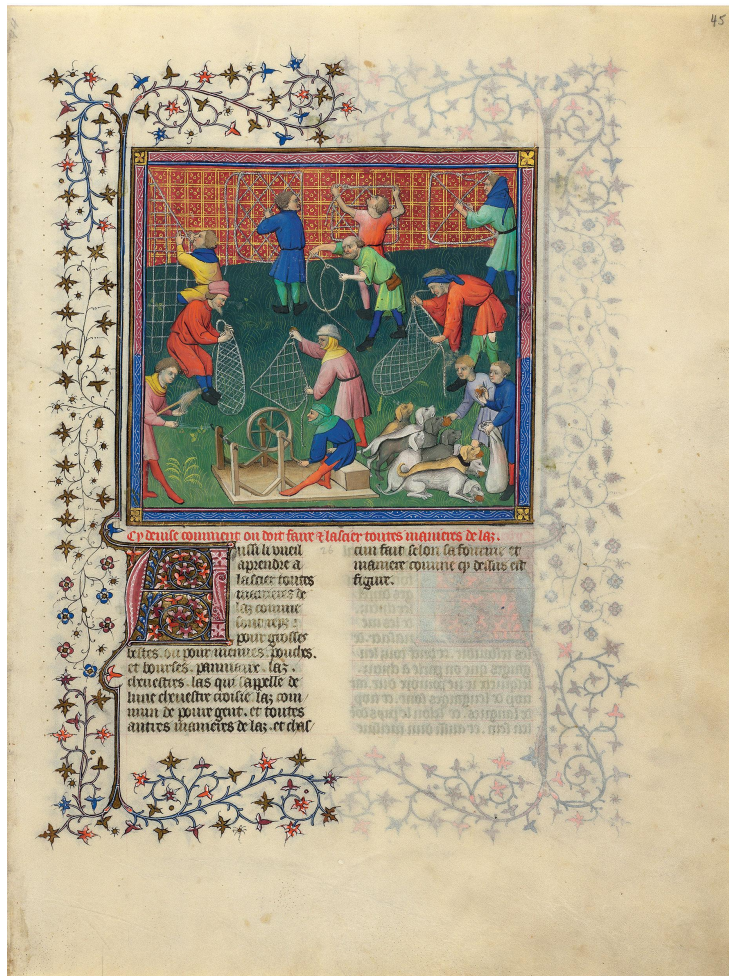 45
Cy deuise comment on doit faire & lascier toutes manieres de laz.
Aussi li vueil
aprendre a
lascier toutes
manieres de
laz comme
sont retz
pour grosses
bestes. ou pour menues. pouches.
et bourses. panniaux. laz.
cheuestres. las qui sappelle de
lune cheuestre croisie laz com
mun de poure gent. et toutes
autres manieres de laz. et chas
cun fait selon sa fourme et
maniere comme cy dessus est
figure.